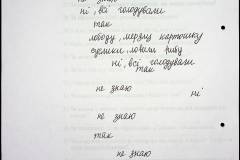 не знаю
ні, всі голодували
так
лободу, мерзлу картошку
ховали, ловили рибу
ні, всі голодували
так
не знаю
ні
не знаю
так
не знаю